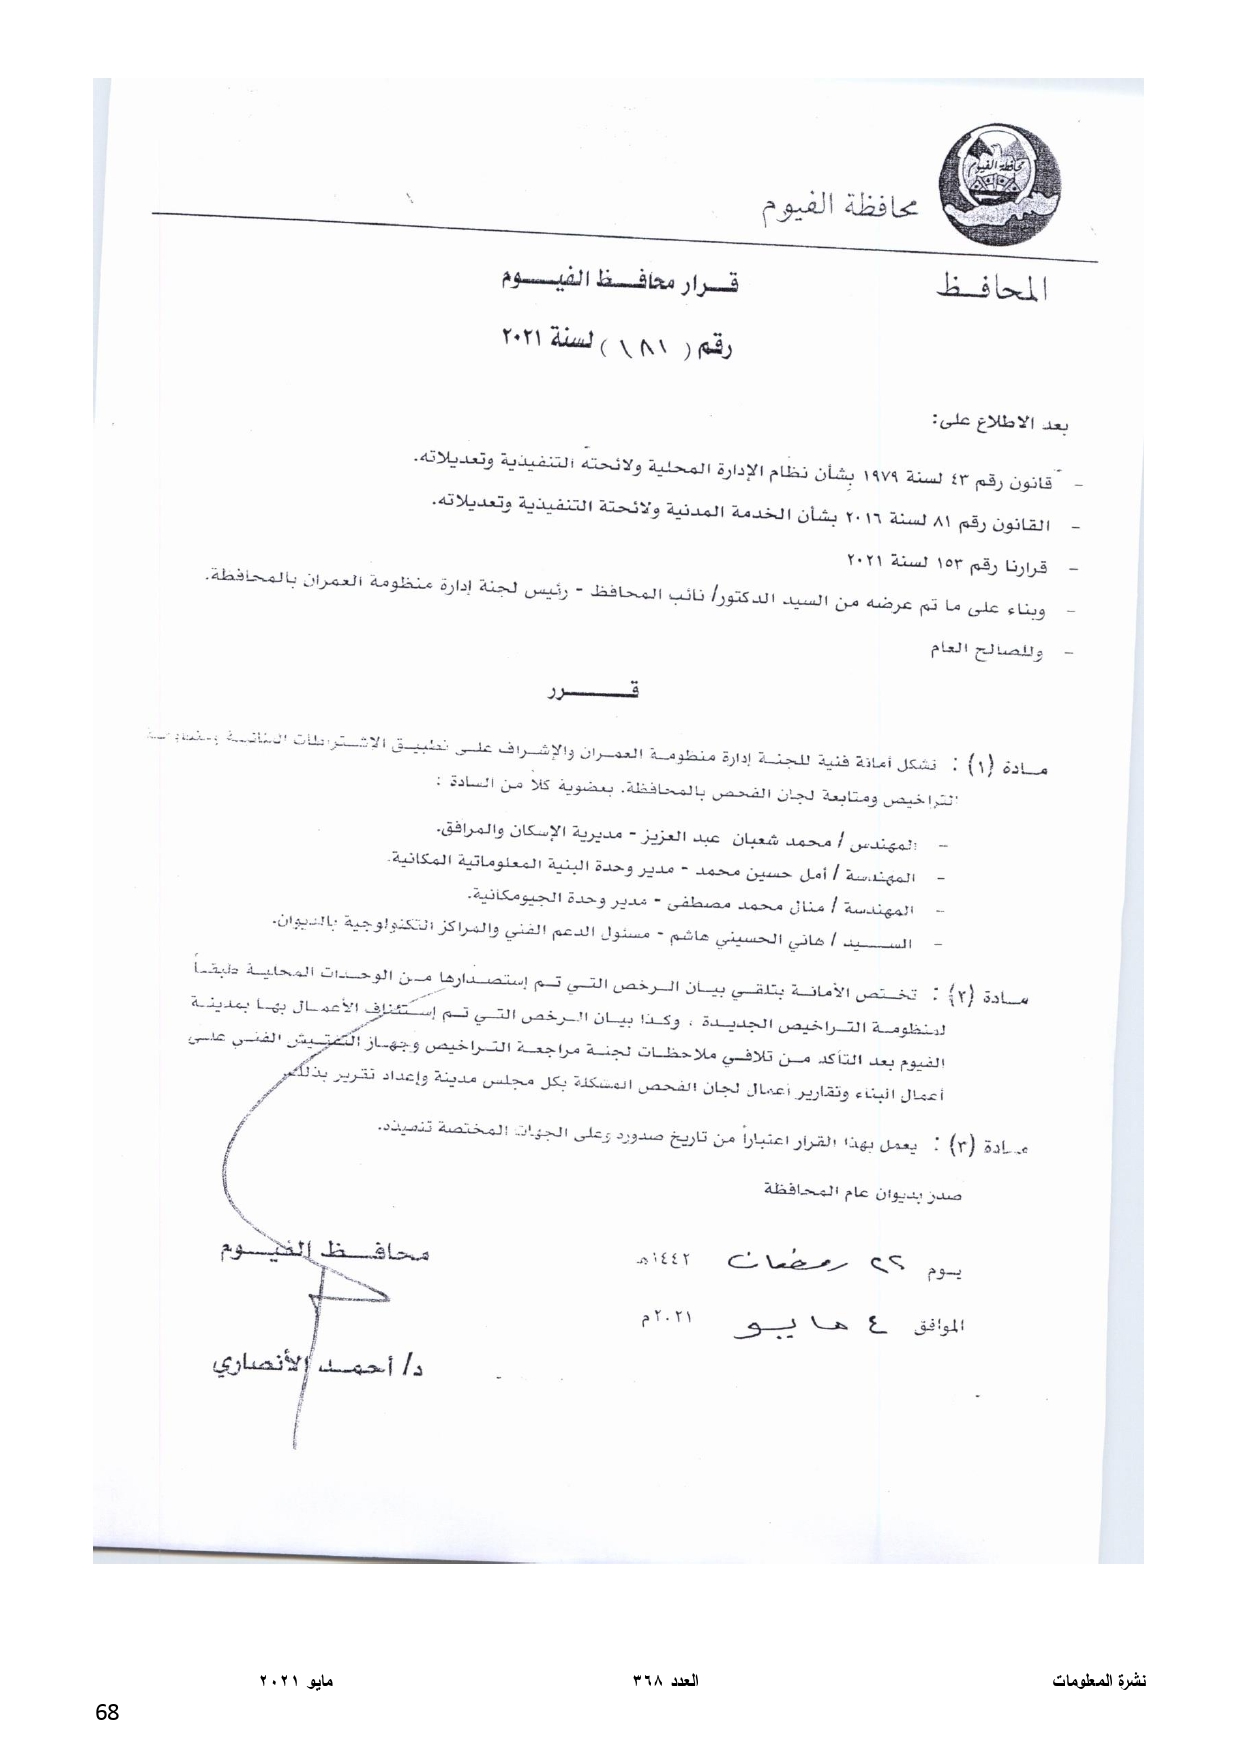 محافظة الفيوم
محافظة الفيوم
المحافــظ
قــرار محافــظ الفيــوم
رقم ( ١٨١ ) لسنة ٢٠٢١
بعد الاطلاع على:
- قانون رقم ٤٣ لسنة ١٩٧٩ بشأن نظام الإدارة المحلية ولائحته التنفيذية وتعديلاته.
- القانون رقم ٨١ لسنة ٢٠١٦ بشأن الخدمة المدنية ولائحتة التنفيذية وتعديلاته.
- قرارنا رقم ١٥٣ لسنة ٢٠٢١
- وبناء على ما تم عرضه من السيد الدكتور/ نائب المحافظ - رئيس لجنة إدارة منظومة العمران بالمحافظة.
- وللصالح العام
قــــــرر
مــادة (١) : تشكل أمانة فنية للجنـة إدارة منظومـة العمـران والإشـراف علـى تطبيـق الاشـتراطات البنائيـة ومنظومـة
التراخيص ومتابعة لجان الفحص بالمحافظة. بعضوية كلاً من السادة :
- المهندس / محمد شعبان عبد العزيز - مديرية الإسكان والمرافق.
- المهندسة / أمل حسين محمد - مدير وحدة البنية المعلوماتية المكانية.
- المهندسة / منال محمد مصطفى - مدير وحدة الجيومكانية.
- الســـيد / هاني الحسيني هاشم - مسئول الدعم الفني والمراكز التكنولوجية بالديوان.
مــادة (٢) : تخـتص الأمانـة بتلقـي بيـان الـرخص التـي تـم إستصـدارها مـن الوحـدات المحليـة طبقـاً
لمنظومـة التـراخيص الجديـدة ، وكـذا بيـان الـرخص التـي تـم إسـتئناف الأعمـال بهـا بمدينـة
الفيوم بعد التأكد مـن تلافـي ملاحظـات لجنـة مراجعـة التـراخيص وجهـاز التفتـيش الفنـي علـى
أعمال البناء وتقارير أعمال لجان الفحص المشكلة بكل مجلس مدينة وإعداد تقرير بذلك.
مــادة (٣) : يعمل بهذا القرار اعتباراً من تاريخ صدوره وعلى الجهات المختصة تنفيذه.
صدر بديوان عام المحافظة
يــوم ٢٢ رمضان ١٤٤٢هـ
الموافق ٤ مايو ٢٠٢١م
محافــظ الفيــوم
د/ أحمــد الأنصاري
نشرة المعلومات العدد ٣٦٨ مايو ٢٠٢١
68